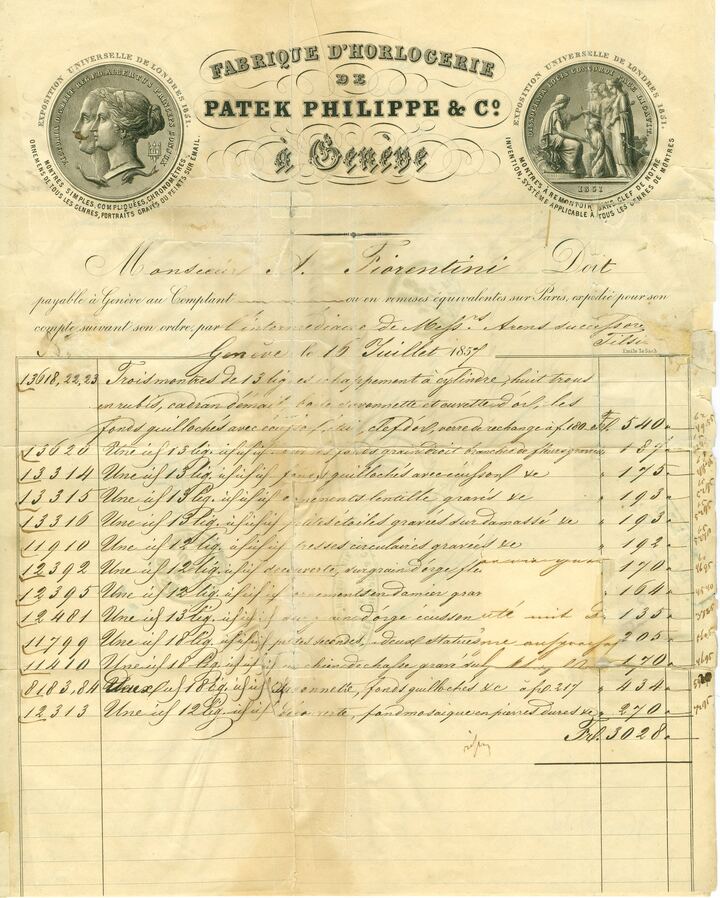 FABRIQUE D'HORLOGERIE
DE
PATEK PHILIPPE & Cº.
à Genève
EXPOSITION UNIVERSELLE DE LONDRES 1851.
MONTRES SIMPLES, COMPLIQUÉES, CHRONOMÈTRES,
ORNEMENS DE TOUS LES GENRES, PORTRAITS GRAVÉS OU PEINTS SUR ÉMAIL.
EXPOSITION UNIVERSELLE DE LONDRES 1851.
1851
MONTRES À REMONTOIR SANS CLEF DE NOTRE
INVENTION, SYSTÈME APPLICABLE À TOUS LES GENRES DE MONTRES
Monsieur A. Fiorentini Doit
payable à Genève au Comptant ou en remises équivalentes sur Paris, expédié pour son
compte suivant son ordre, par l'intermédiaire de Mess.rs Arens successore
Genève le 16 Juillet 1857
13618, 22, 23 Trois montres de 13 lig es échappement à cylindre, huit trous
en rubis, cadran d'émail, savonnette et cuvette d'or, les
fonds guillochés avec clef d'or, verre de rechange à f. 180. 540
13620 Une id 13 lig. 187
13314 Une id 13 lig. id id id fonds guillochés avec écusson &c 175
13315 Une id 13 lig. id id id ornements lentille gravés &c 193
13316 Une id 13 lig. id id id étoiles gravées sur damassé &c 193
11910 Une id 12 lig. id id id tresses circulaires gravées &c 192
12392 Une id 12 lig. id id découverte, sur grain d'orge 170
12395 Une id 12 lig. id id ornements en damier 164
12481 Une id 13 lig. id id id grain d'orge écusson 135
11799 Une id 18 lig. id id id petites secondes, deux 205
11410 Une id 18 lig. id id chien de chasse gravé 170
8183, 84 Deux id 18 lig. id id savonnette, fonds guillochés &c à f. 217 434
12313 Une id 12 lig. id id découverte, fond mosaique en pierres dures &c 270
3028